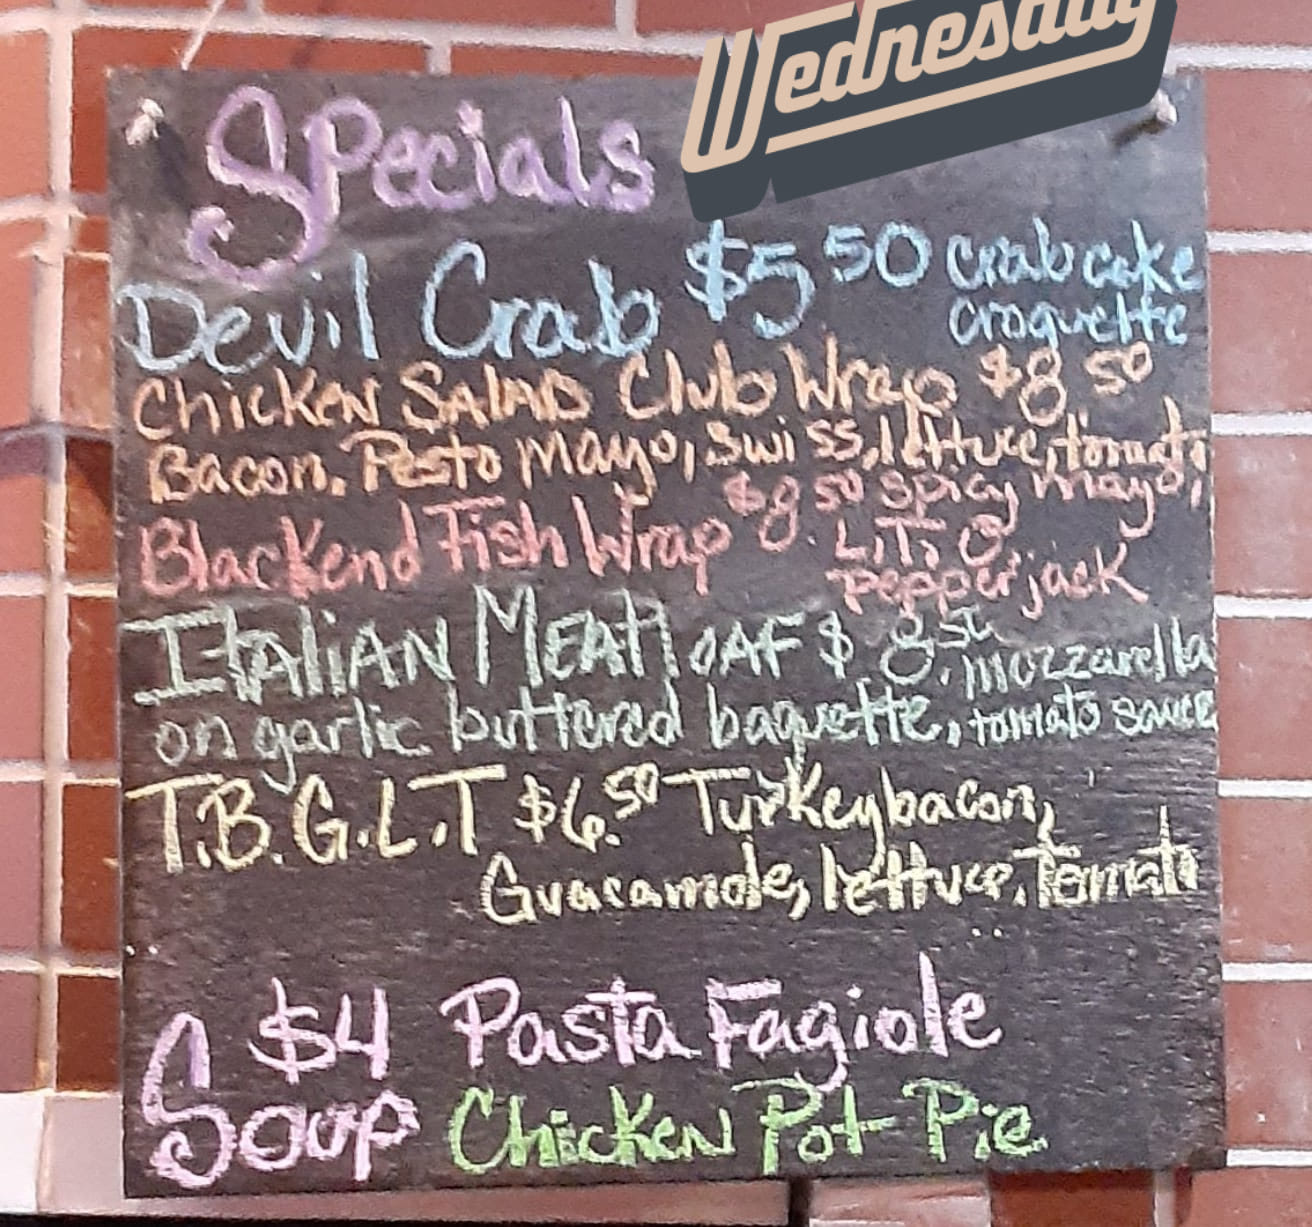 Wednesday
Specials
Devil Crab $5 50 Crab cake
croquette
Chicken Salad Club Wrap $8 50
Bacon. Pesto mayo, swiss, lettuce, tomato
Blackend Fish Wrap $8.50 spicy mayo,
L, T, @
pepper jack
Italian Meatloaf $ 8. mozzarella
on garlic buttered baguette, tomato sauce
T.B.G.L.T $6.50 Turkey bacon,
Guacamole, lettuce, Tomato
$4 Pasta Fagiole
Soup Chicken Pot Pie